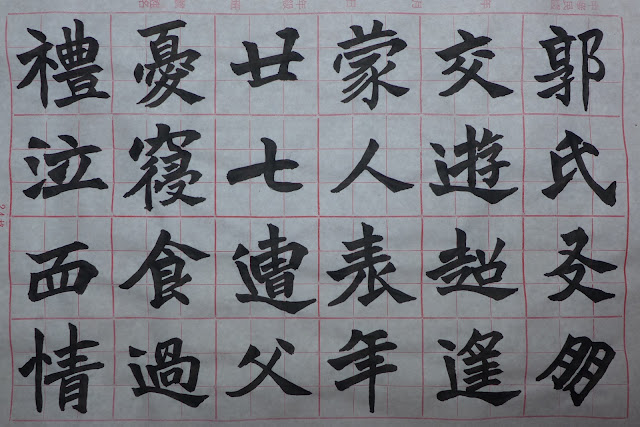 郭氏友朋
交遊超逢
蒙人表年
廿七遭父
憂寢食過
禮泣血情